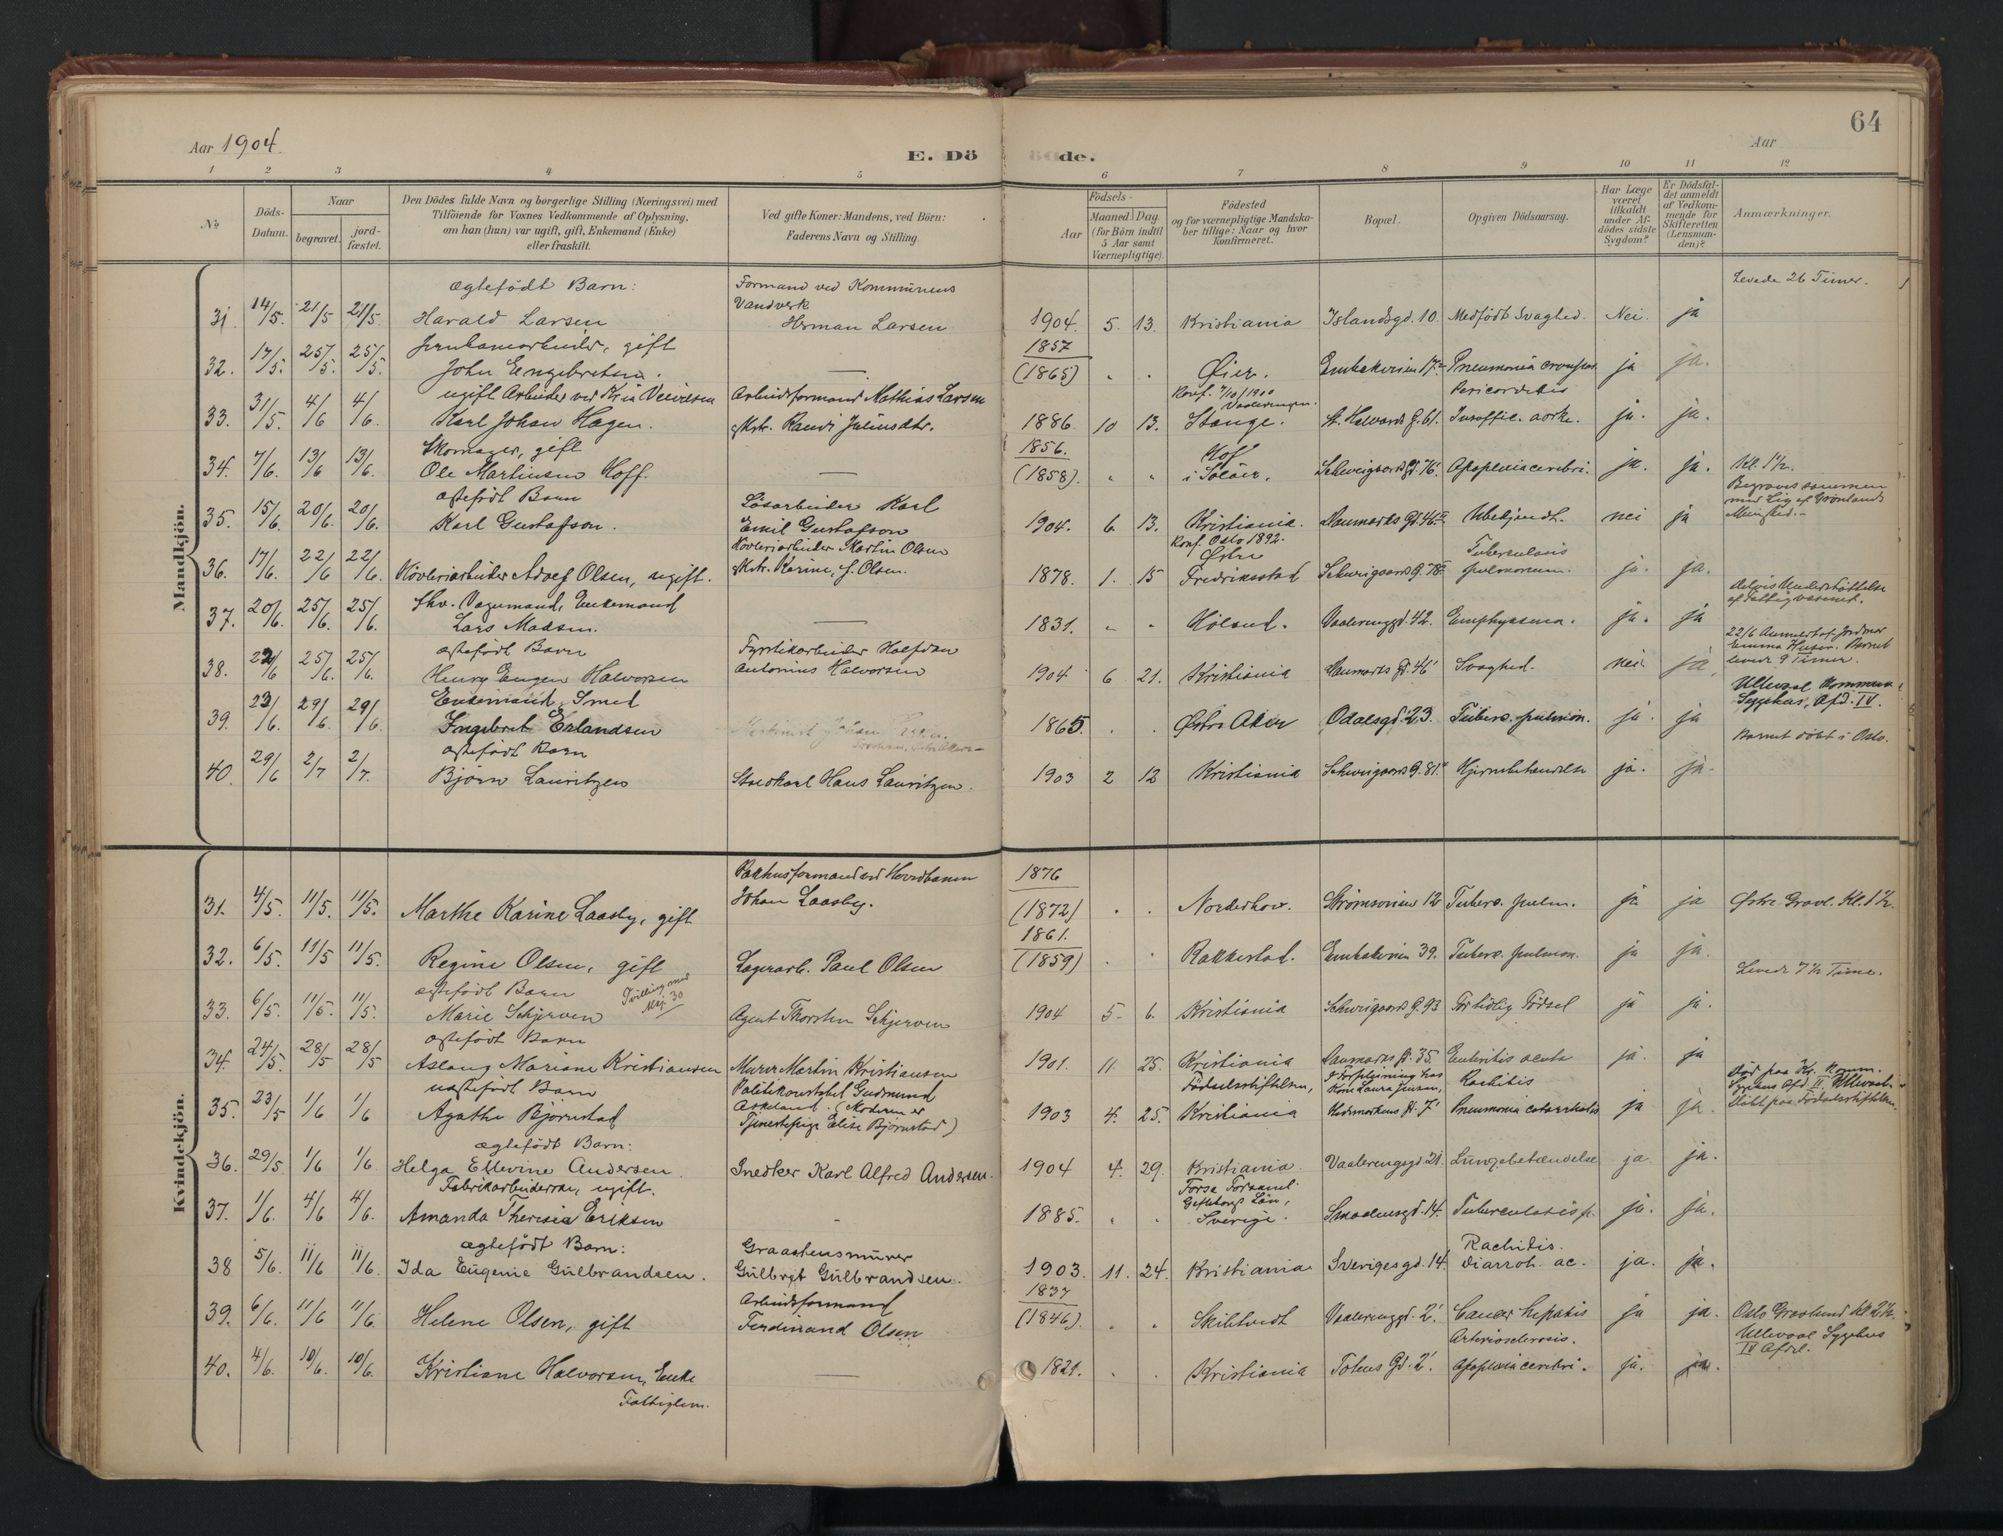 Aar 1904.
E. Döde.
Aar
64
1 2 3 4 5 6 7 8 9 10 11 12
№
Döds-Datum.
Naar
begravet.
jord-fæstet.
Den Dödes fulde Navn og borgerlige Stilling (Næringsvei) med
Tilföiende for Voxnes Vedkommende af Oplysning,
om han (hun) var ugift, gift, Enkemand (Enke)
eller fraskilt.
Ved gifte Koner: Mandens, ved Börn:
Faderens Navn og Stilling.
Födsels-
Aar
Maaned. Dag.
(for Börn indtil
5 Aar samt
Værnepligtige).
Födested
og for værnepligtige Mandskaber tillige: Naar og hvor
konfirmeret.
Bopæl.
Opgiven Dödsaarsag.
Har Læge
været
tilkaldt
under Afdödes sidste
Sygdom?
Er Dödsfaldet anmeldt
af Vedkommende for
Skifteretten
(Lensmanden)?
Anmærkninger.
Mandkjön.
ægtefödt Barn: Formand ved Kommunens Vandverk Levede 26 Timer.
31. 14/5. 21/5 21/5. Harald Larsen Herman Larsen 1904. 5. 13. Kristiania Islandsgd. 10. Medfödt Svaghed. Nei. ja
gift 1857
32. 17/5. 25/5. 25/5. John Engebretsen. — (1865) " " Øier. 17 Pneumonia ja ja.
ugift Arbeider ved Arbeidsformand Mathias Larsen Konf. 7/10 1900 Vaalerengen. Pericarditis
33. 31/5. 4/6 4/6. Karl Johan Hagen. Mdr. Randi Juliusdtr. 1886 10 13. Stange. St. Halvards G. 61. Insuffic. aortæ. ja. ja.
Skomager, gift 1856.
34. 7/6. 13/6 13/6. Ole Martinsen Hoff. — (1858). " " Hof i Solør. Schweigaards G. 76. Apoplexia cerebri. ja. ja. Kl. 1½.
ægtefödt Barn Løsarbeider Karl
35. 15/6. 20/6 20/6. Karl Gustafson. Emil Gustafsson 1904. 6. 13. Kristiania. Danmarks Gd. 46 Ubekjendt. nei ja
Konf. Oslo 1892. Tuberculosis
36. 17/6. 22/6 22/6. Høvleriarbeider Adolf Olsen, ugift. Høvleriarbeider Martin Olsen Mdr. Karine, f. Olsen. 1878. 1. 15 Østre Fredriksstad Schweigaards G. 78 pulmonum. ja. ja.
Fhv. Vognmand, Enkemand
37. 20/6. 25/6. 25/6. Lars Madsen. — 1831. " " Høland. Vaalerenggd. 42. Emphysema. ja. ja
ægtefödt Barn Fyrstikarbeider Halfdan
38. 22/6 25/6. 25/6. Henry Eugen Halvorsen Antonius Halvorsen 1904 6 21. Kristiania Danmarks Gd. 46 Svaghed. nei ja. levede 9 Timer.
Enkemand, Smed Ullevaal Kommun. Sygehus, Afd. IV.
39. 23/6. 29/6. 29/6. Ingebret Erlandsen 1865. " " Østre Aker Odalsgd. 23. Tuberc. pulmon. ja. ja
ægtefödt Barn Barnet döbt i Oslo.
40. 29/6 2/7 2/7. Bjørn Lauritzen Hans Lauritzen. 1903 2 12 Kristiania Schweigaards G. 81 Hjernebetændelse ja. ja.
Kvindekjön.
Pakhusformand ved Hovedbanen 1876
31. 4/5. 11/5. 11/5. Marthe Karine Laasby, gift Johan Laasby. (1872) " " Norderhov. Strömsveien 12 Tuberc. pulm. ja ja Østre Gravl. Kl. 1½.
1861.
32. 6/5. 11/5 11/5. Regine Olsen, gift Lagerarb. Paul Olsen (1859) " " Rakkestad. 39. Tuberc. pulmon. ja ja.
ægtefödt Barn Tvilling med No. 30 Levede 7½ Time.
33. 6/5. 11/5. 11/5. Marie Schjerven Agent Thorsten Schjerven 1904 5 6. Kristiania Schweigaards G. 93 For tidlig Födsel ja ja.
ægtefödt Barn
34. 24/5. 28/5 28/5 Aslaug Mariane Kristiansen Murer Martin Kristiansen 1901. 11. 25. Kristiania Danmarks G. 35. Enteritis acuta ja. ja
uægtefödt Barn Politikonstabel Gudmund Askeland. Födselsstiftelsen, I Forpleining hos Rachitis
35. 23/5 1/6 1/6 Agathe Bjørnstad (Moderen er Tjenestepige Elise Bjørnstad) 1903 4. 25. Kristiania 7 Pneumonia catarrhalis ja ja. Död paa Kr. Komm. Sygehus Afd. II Ullevaal. Döbt paa Födselsstiftelsen.
ægtefödt Barn:
36. 29/5 1/6 1/6. Helga Ellevine Andersen. Snedker Karl Alfred Andersen. 1904 4. 29. Kristiania. Vaalerengsgd. 21. Lungebetændelse ja ja.
Fabrikarbeiderske, ugift. Forsa Forsaml. Gefleborgs Län,
37. 1/6. 4/6 4/6. Amanda Theresia Eriksen — 1885. " " Sverige. Smaalensgd. 14. Tuberculosis p. ja. ja.
ægtefödt Barn: Graastensmurer Rachitis.
38 5/6. 11/6 11/6. Ida Eugenie Gulbrandsen. Gulbrgt Gulbrandsen. 1903. 11. 24. Kristiania Sverigesgd. 14. Diarroh. ac. ja. ja.
Arbeidsformand 1837
39. 6/6. 11/6 11/6. Helene Olsen, gift Ferdinand Olsen (1846). " " Skibtvedt Vaalerenggd. 2. Cancer hepatis ja ja. Oslo Gravlund kl 2½.
Arteriosclerosis. Ullevaal Sygehus IV Afdel.
40. 4/6. 10/6. 10/6. Kristiane Halvorsen, Enke — 1821. " " Kristiania Totens Gd. 2. Apoplexia cerebri. ja. ja.
Fattiglem.